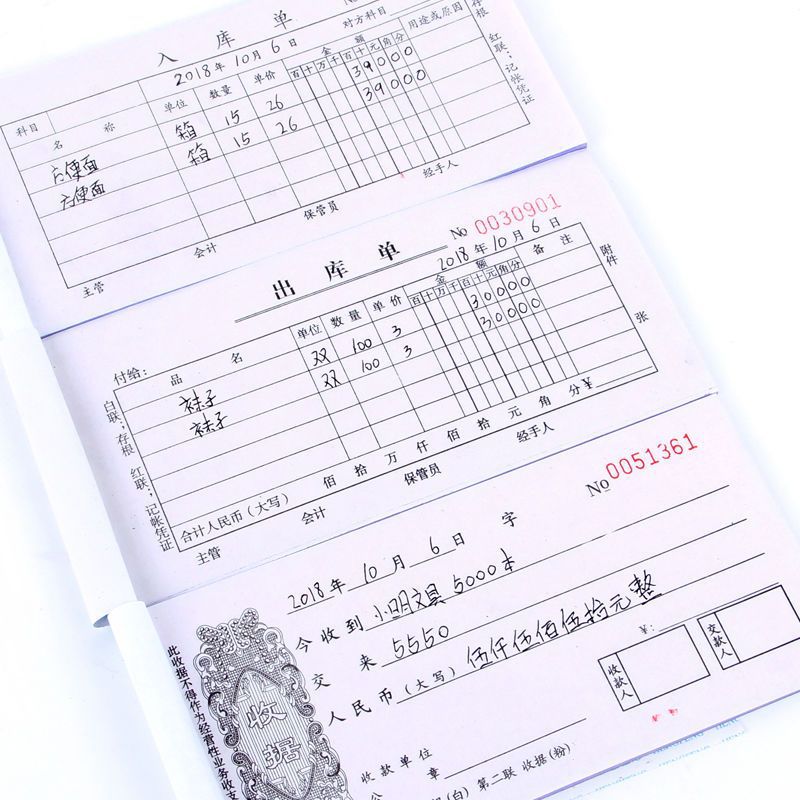 入库单
No
2018年10月6日
对方科目
科目
名称 单位 数量 单价 金额 用途或原因
百十万千百十元角分
方便面 箱 15 26 39000
方便面 箱 15 26 39000
主管 会计 保管员 经手人
存根 红联:记帐凭证
出库单
No 0030901
2018年10月6日
付给:
品名 单位 数量 单价 金额 备注
百十万千百十元角分
袜子 双 100 3 30000
袜子 双 100 3 30000
合计人民币(大写) 佰拾万仟佰拾元角分¥
主管 会计 保管员 经手人
白联:存根 红联:记帐凭证
附件 张
No 0051361
2018年10月6日 字
今收到 小明文具5000本
交来 5550
人民币(大写) 伍仟伍佰伍拾元整
¥:
收款人
交款人
收款单位
公章
(白) 第二联 收据(粉)
收据
此收据不得作为经营性业务收支